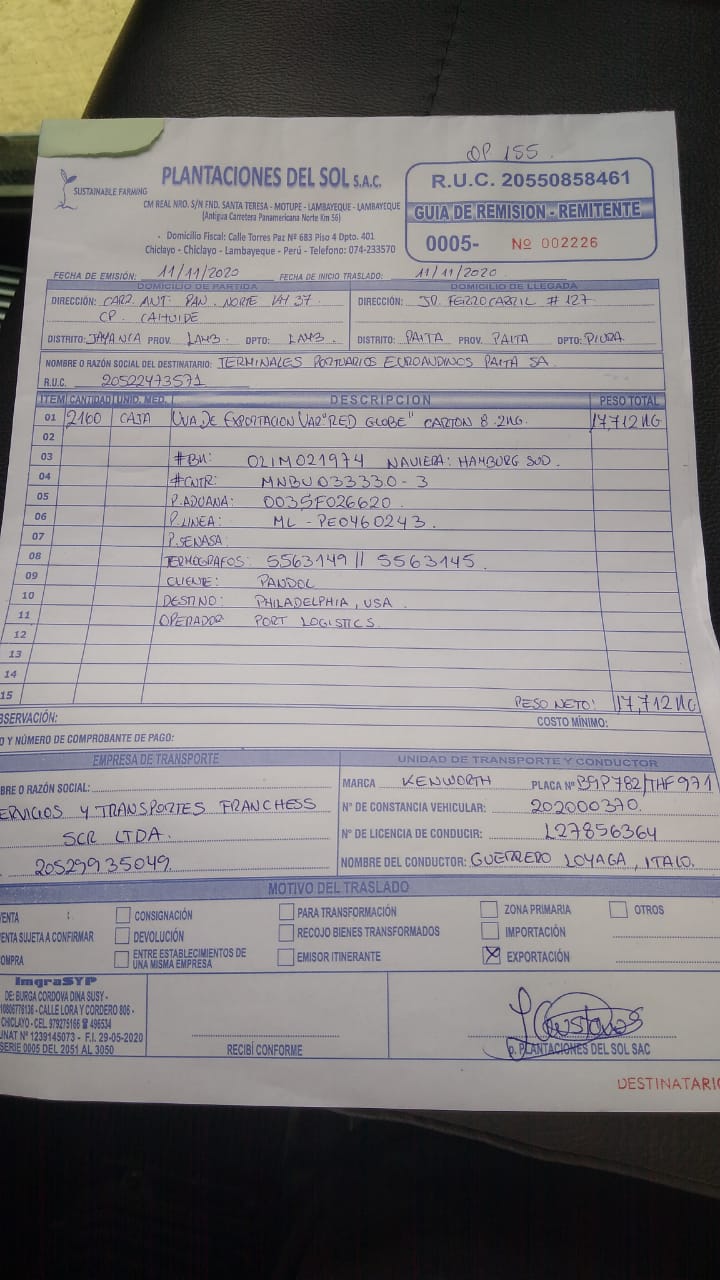 OP 155.
SUSTAINABLE FARMING
PLANTACIONES DEL SOL S.A.C.
CM REAL NRO. S/N FND. SANTA TERESA - MOTUPE - LAMBAYEQUE - LAMBAYEQUE
(Antigua Carretera Panamericana Norte Km 56)
Domicilio Fiscal: Calle Torres Paz Nº 683 Piso 4 Dpto. 401
Chiclayo - Chiclayo - Lambayeque - Perú - Telefono: 074-233570
R.U.C. 20550858461
GUIA DE REMISION - REMITENTE
0005- Nº 002226
FECHA DE EMISIÓN: 11/11/2020 FECHA DE INICIO TRASLADO: 11/11/2020.
DOMICILIO DE PARTIDA
DIRECCIÓN: CARR. ANT. PAN. NORTE KM 37
CP. CAHUIDE
DISTRITO: JAYANCA PROV. LAMB. DPTO: LAMB.
DOMICILIO DE LLEGADA
DIRECCIÓN: JR. FERROCARRIL # 127
DISTRITO: PAITA PROV. PAITA DPTO: PIURA
NOMBRE O RAZÓN SOCIAL DEL DESTINATARIO: TERMINALES PORTUARIOS EUROANDINOS PAITA SA
R.U.C. 20522473571
ITEM CANTIDAD UNID. MED. DESCRIPCION PESO TOTAL
01 2160 CAJA UVA DE EXPORTACION VAR "RED GLOBE" CARTON 8.2KG. 17,712 KG
02
03 #BK: 021M021974 NAVIERA: HAMBURG SUD.
04 #CNTR: MNBU033330-3
05 P.ADUANA: 0035F026620.
06 P.LINEA: ML-PE0460243.
07 P.SENASA:
08 TERMOGRAFOS: 5563149 // 5563145.
09 CLIENTE: PANDOL
10 DESTINO: PHILADELPHIA, USA.
11 OPERADOR PORT LOGISTICS.
12
13
14
15 PESO NETO: 17,712 KG
BSERVACIÓN: COSTO MÍNIMO:
O Y NÚMERO DE COMPROBANTE DE PAGO:
EMPRESA DE TRANSPORTE
BRE O RAZÓN SOCIAL:
ERVICIOS Y TRANSPORTES FRANCHESS
SCR LTDA.
20529935049.
UNIDAD DE TRANSPORTE Y CONDUCTOR
MARCA KENWORTH PLACA Nº B9P782/THF971
Nº DE CONSTANCIA VEHICULAR: 202000370.
Nº DE LICENCIA DE CONDUCIR: L27856364
NOMBRE DEL CONDUCTOR: GUERRERO LOYAGA, ITALO.
MOTIVO DEL TRASLADO
ENTA CONSIGNACIÓN PARA TRANSFORMACIÓN ZONA PRIMARIA OTROS
ENTA SUJETA A CONFIRMAR DEVOLUCIÓN RECOJO BIENES TRANSFORMADOS IMPORTACIÓN
OMPRA ENTRE ESTABLECIMIENTOS DE UNA MISMA EMPRESA EMISOR ITINERANTE X EXPORTACIÓN
ImgraSYP
DE: BURGA CORDOVA DINA SUSY -
10806778136 - CALLE LORA Y CORDERO 806 -
CHICLAYO - CEL. 979275166 ☎ 496534
UNAT Nº 1239145073 - F.I. 29-05-2020
SERIE 0005 DEL 2051 AL 3050
RECIBÍ CONFORME
p. PLANTACIONES DEL SOL SAC
DESTINATARIO